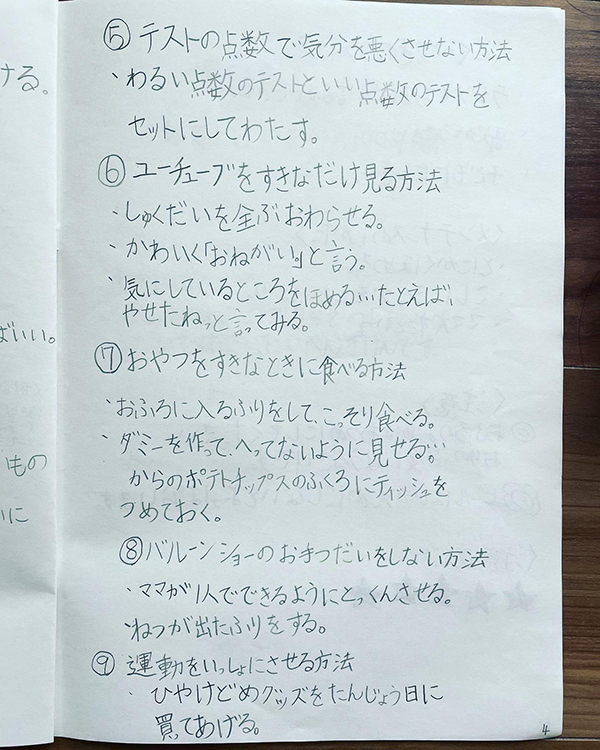 ける。
ばいい。
もの
に
⑤ テストの点数で気分を悪くさせない方法
・わるい点数のテストといい点数のテストを
セットにしてわたす。
⑥ ユーチューブをすきなだけ見る方法
・しゅくだいを全ぶおわらせる。
・かわいく「おねがい。」と言う。
・気にしているところをほめる。たとえば、
やせたねっと言ってみる。
⑦ おやつをすきなときに食べる方法
・おふろに入るふりをして、こっそり食べる。
・ダミーを作って、へってないように見せる。
からのポテトチップスのふくろにティッシュを
つめておく。
⑧ バルーンショーのおきつだいをしない方法
・ママが1人でできるようにとっくんさせる。
・ねつが出たふりをする。
⑨ 運動をいっしょにさせる方法
・ひやけどめグッズをたんじょう日に
買てあげる。
4